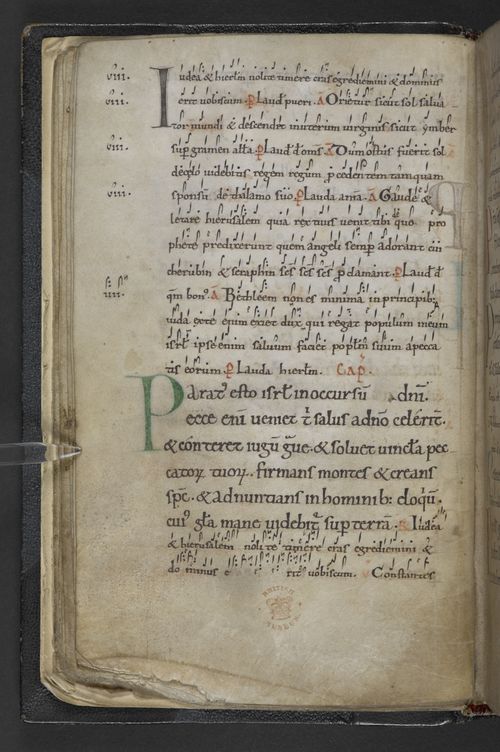 viii. Iudea & hierl̄m nolite timere cras egrediemini & dominus
viii. erit uobiscum. P Laud pueri. A Orietur sicut sol salua
tor mundi & descendet in uterum uirginis sicut ymber
viii. sup gramen alła. P Laud d̄ om̄s. A Dum ortus fuerit sol
de cęlo uidebitis regem regum p̄cedentem tamquam
viii. sponsū de thalamo suo. P Lauda anā. A Gaude &
letare hierusalem quia rex tuus uenit tibi de quo pro
phete predixerunt quem angeli semp adorant cui
cherubin & seraphin sc̄s sc̄s sc̄s p̄clamant. P Laud d̄
iiii. qm̄ bon. A Bethleem non es minima in principib;
iuda ex te enim exiet dux qui regat populum meum
isrl̄ ipse enim saluum faciet popłm suum a pecca
tis eorum. P Lauda hierl̄m. CAP̄.
Parat esto isrl̄ in occursū dn̄i.
ecce eni ueniet t̄ salus a dn̄o celerit̄.
& conteret iugū & soluet uincła pec
catoꝝ tuoꝝ. firmans montes & creans
sp̄c. & adnuntians in hominib: eloqū.
cui gła mane uidebit̄ sup terrā. R Iudea
& hierusalem nolite timere cras egrediemini &
dominus e rit uobiscum. V Constantes
BRITISH MUSEUM